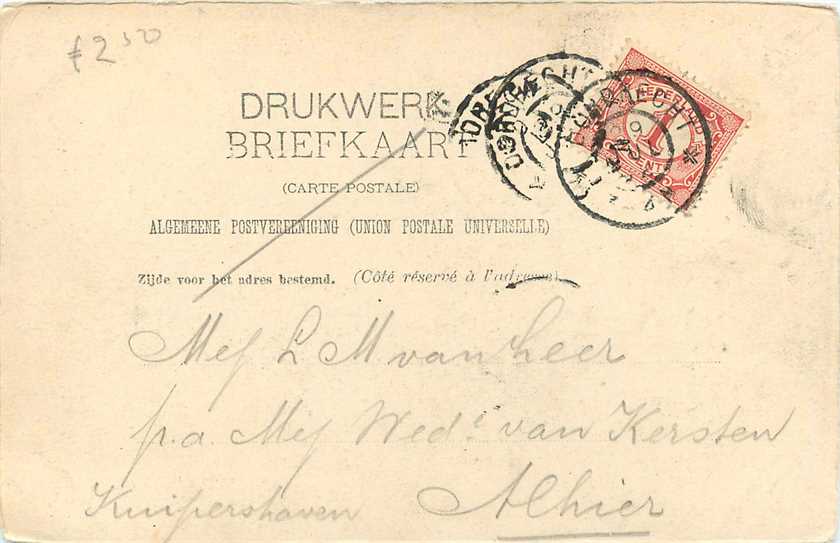 £ 2 50
DRUKWERK
BRIEFKAART
(CARTE POSTALE)
ALGEMEENE POSTVEREENIGING (UNION POSTALE UNIVERSELLE)
Zijde voor het adres bestemd. (Côté réservé à l'adresse)
DORDRECHT
DORDRECHT
NEDERLAND
1
CENT
Mej L M van Leer
p.a. Mej Wedᵉ van Kersten
Kuipershaven Alhier